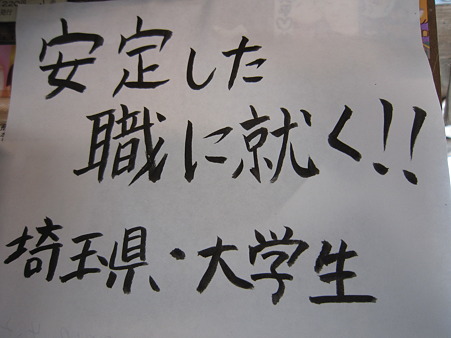 安定した
職に就く!!
埼玉県・大学生